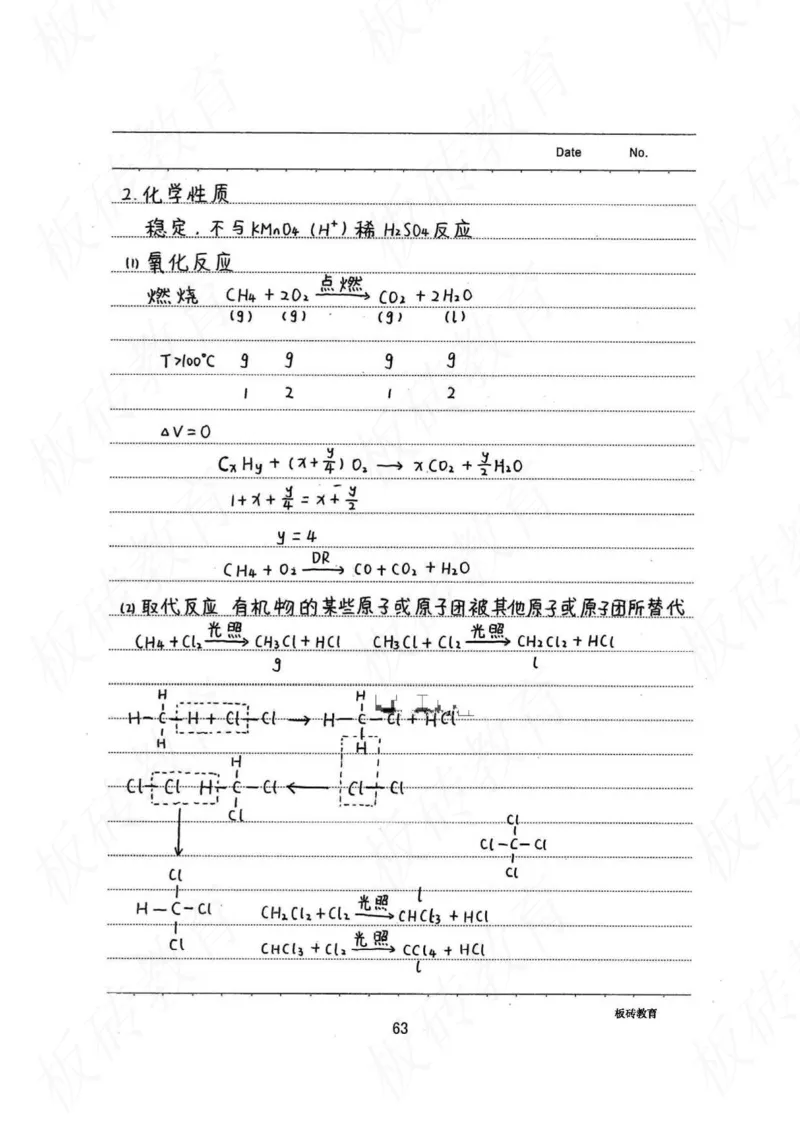 Date No.
2.化学性质
稳定，不与KMnO4 (H⁺) 稀 H2SO4反应
(1) 氧化反应
燃烧 CH4 + 2O2 —点燃→ CO2 + 2H2O
(g) (g) (g) (l)
T>100°C g g g g
1 2 1 2
△V=0
CxHy + (x+y/4) O2 → x CO2 + y/2 H2O
1+x+y/4 = x+y/2
y = 4
CH4 + O2 —DR→ CO + CO2 + H2O
(2) 取代反应 有机物的某些原子或原子团被其他原子或原子团所替代
CH4+Cl2 —光照→ CH3Cl + HCl CH3Cl + Cl2 —光照→ CH2Cl2 + HCl
g l
H H
H—C—H + Cl—Cl → H—C—Cl + HCl
H H
H
Cl—Cl H—C—Cl ← Cl—Cl
Cl
Cl
Cl—C—Cl
Cl
Cl
H—C—Cl
Cl
l
CH2Cl2+Cl2 —光照→ CHCl3 + HCl
CHCl3 + Cl2 —光照→ CCl4 + HCl
l
板砖教育
63